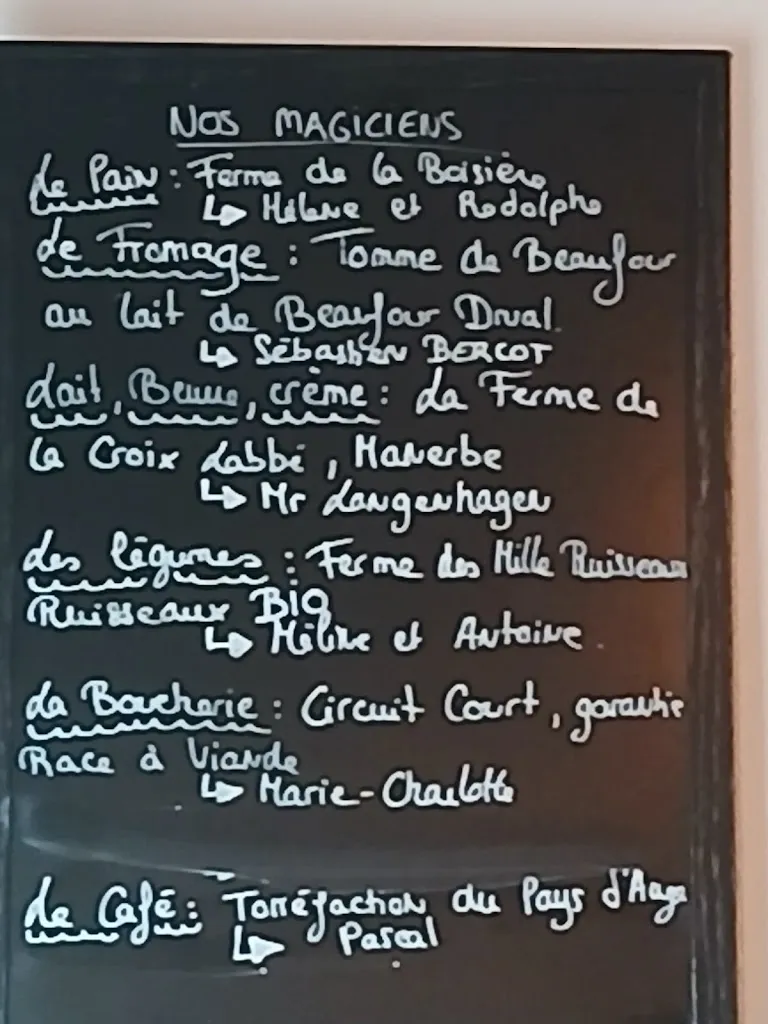 NOS MAGICIENS
Le Pain : Ferme de la Boisière
↳ Hélène et Rodolphe
Le Fromage : Tomme de Beaufour
au lait de Beaufour Druval.
↳ Sébastien BERCOT
Lait, Beurre, crème : La Ferme de
la Croix Labbé, Manerbe
↳ Mr Langenhagen
Les légumes : Ferme des Mille Ruisseaux
Ruisseaux BIO
↳ et Antoine.
La Boucherie : Circuit Court, garantie
Race à Viande
↳ Marie-Charlotte
Le Café : Torréfaction du Pays d'Auge
↳ Pascal